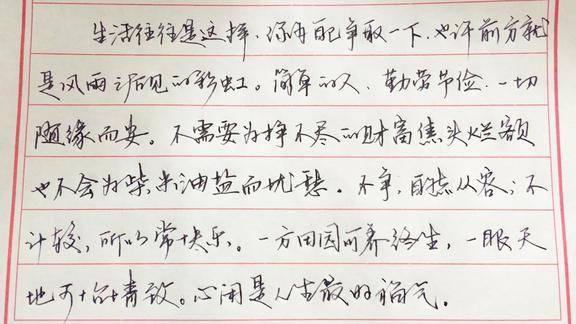 生活往往是这样，你再配争取一下，也许前方就
是风雨后见的彩虹。简单的人，勤劳节俭，一切
随缘而安。不需要为挣不尽的财富焦头烂额
也不会为柴米油盐而忧愁。不争，自然从容；不
计较，所以常快乐。一方田园可养终生，一眼天
地可怡情致。心闲是人生最好的福气。